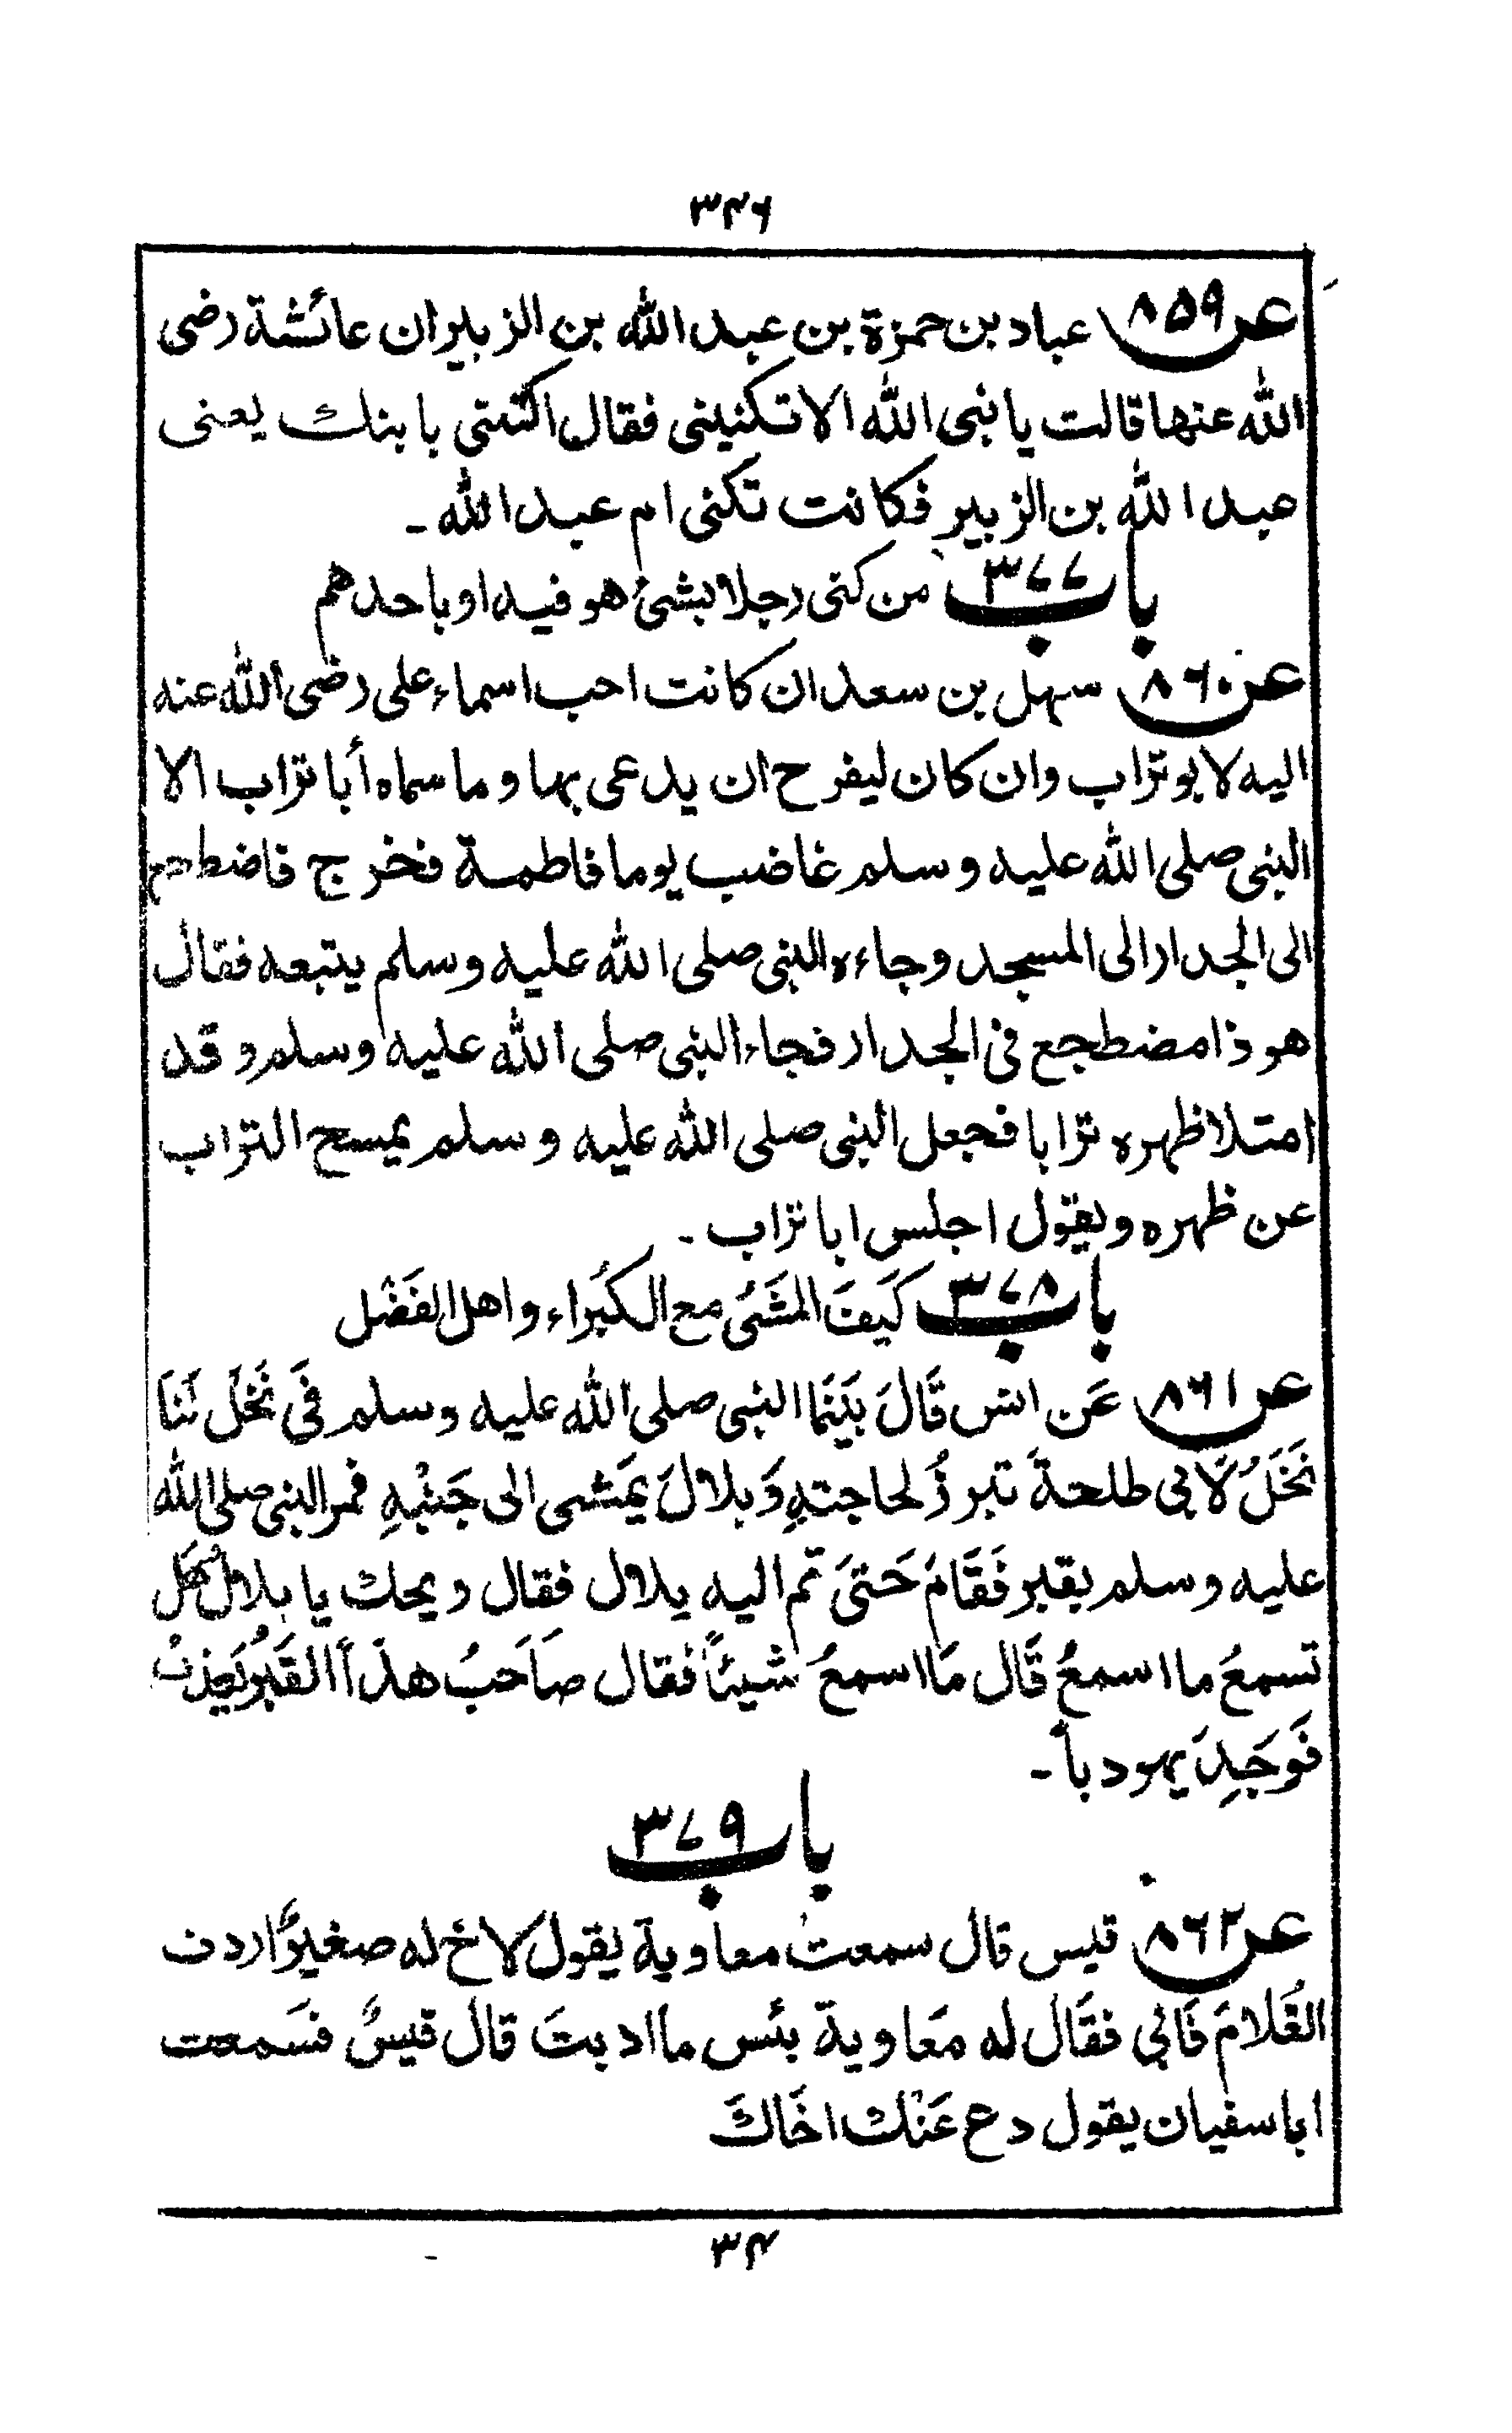 ۳۴۶
عن ۸۵۹ عباد بن حمزة بن عبد الله بن الزبير ان عائشة رضى
الله عنها قالت يا نبى الله الا تكنينى فقال اكتنى بابنك يعنى
عبد الله بن الزبير فكانت تكنى ام عبد الله ۔
باب ۳۷۷ من كنى رجلا بشئ هو فيه او باحدهم
عن ۸۶۰ سهل بن سعد ان كانت احب اسماء على رضى الله عنه
اليه لابو تراب وان كان ليفرح ان يدعى بها وما سماه أبا تراب الا
النبى صلى الله عليه وسلم غاضب يوما فاطمة فخرج فاضطجع
الى الجدار الى المسجد وجاءه النبى صلى الله عليه وسلم يتبعه فقال
هو ذا مضطجع فى الجدار فجاء النبى صلى الله عليه وسلم وقد
امتلا ظهره ترابا فجعل النبى صلى الله عليه وسلم يمسح التراب
عن ظهره ويقول اجلس ابا تراب ۔
باب ۳۷۸ كَيفَ المشَىُ مع الكبَراء واهل الفَضْل
عن ۸۶۱ عَن انس قَالَ بَيَنَما النبى صلى الله عليه وسلم فِى نَخَل لَنَا
نَخَلُ لاَبى طلحةَ تبرزُ لحاجتهِ وَبلالَ يَمَشى الى جَنْبهِ فمر النبى صلى الله
عليه وسلم بقبر فَقَامَ حَتىَ تم اليه بلال فقال ويحك يا بلالُ هَل
تسمعَ ما اسمعُ قَال مَا اسمعُ شيئاً فقال صَاحَبُ هذَا القَبُر يَعذبُ
فَوَجَدِ يَهوديا ۔
باب ۳۷۹
عن ۸۶۲ قيس قال سمعت معاوية يقول لاخ له صغيرٌ اردف
الغُلامَ فَابى فقَال له مَعاوية بئس ما ادبتَ قال قيسٌ فسَمعت
ابا سفيان يقول دع عَنْك اخَاكَ
۳۴